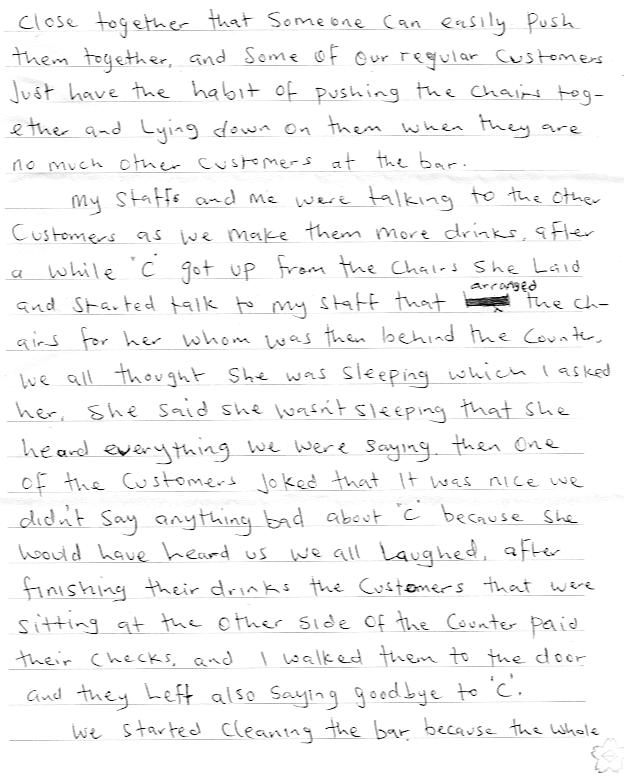 close together that someone can easily push
them together, and some of our regular customers
Just have the habit of pushing the chairs tog-
ether and Lying down on them when they are
no much other customers at the bar.
My staffs and me were talking to the other
customers as we make them more drinks, after
a while 'C' got up from the chairs she Laid
and started talk to my staff that arranged the ch-
airs for her whom was then behind the counter.
we all thought she was sleeping which I asked
her. She said she wasn't sleeping that she
heard everything we were saying. then one
of the customers Joked that It was nice we
didn't say anything bad about 'C' because she
would have heard us we all Laughed, after
finishing their drinks the customers that were
sitting at the other side of the counter paid
their checks, and I walked them to the door
and they Left also saying goodbye to 'C'.
We started cleaning the bar because the whole